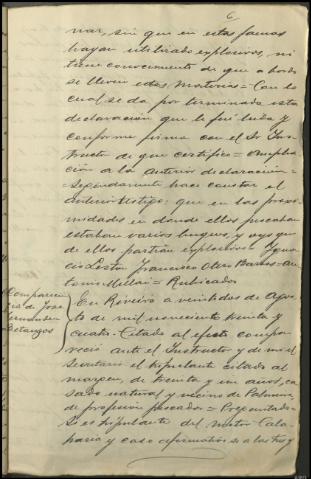 6
mar, sin que en estas faenas
hayan utilizado explosivos, ni
tiene conocimiento de que a bordo
se lleven estas materias = Con lo
cual se da por terminada esta
declaración que le fué leida y
conforme firma con el Sr Ins-
tructor de que certifico = Amplia-
ción a la anterior declaración =
Seguidamente hace constar el
anterior testigo: que en las proxi-
midades en donde ellos pescaban
estaban varios buques, y oyo que
de ellos partian explosiones Igna
cio Lestón Francisco Otero Barbos = An-
tonio Millán = Rubricados
Comparecen
cia de José
Fernandez
Betanzos
En Riveira a veintidos de Agos-
to de mil novecientos treinta y
cuatro = Citado al efecto compa-
reció ante el Instructor y de mi el
Secretario el tripulante citado al
margen, de treinta y un años, ca
sado natural y vecino de Palmeira,
de profesión pescador = Preguntado =
Si es tripulante del motor Cala-
pharia y caso afirmativo si a las tres y